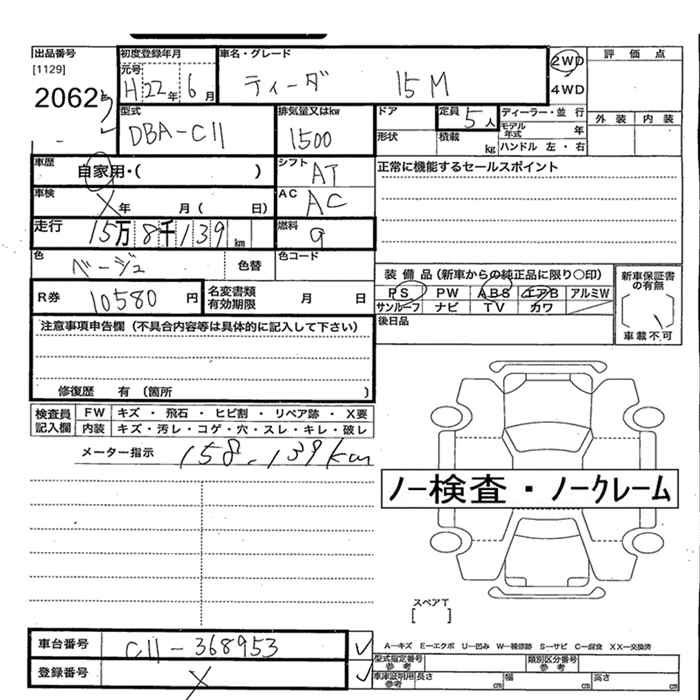 出品番号
[1129]
2062
初度登録年月
元号
H22年 6月
車名・グレード
ティーダ 15M
2WD
4WD
評価点
外装 内装
型式
DBA-C11
排気量又はkw
1500
ドア
形状
定員 5人
積載 kg
ディーラー・並行
モデル年式 年
ハンドル 左・右
車歴
自家用・( )
シフト
AT
正常に機能するセールスポイント
車検
X年 月( 日)
AC
AC
走行
15万8千139km
燃料
g
色
ベージュ
色替
色コード
装備品(新車からの純正品に限り〇印)
新車保証書の有無
PS PW ABS エアB アルミW
サンルーフ ナビ TV カワ
[ ]
車載不可
R券 10580円
名変書類有効期限 月 日
後日品
注意事項申告欄(不具合内容等は具体的に記入して下さい)
修復歴 有(箇所 )
検査員記入欄
FW キズ・飛石・ヒビ割・リペア跡・X要
内装 キズ・汚レ・コゲ・穴・スレ・キレ・破レ
メーター指示 158,139km
ノー検査・ノークレーム
スペアT
[ ]
車台番号 C11-368953
A-キズ E-エクボ U-凹み W-補修跡 S-サビ C-腐食 XX-交換済
登録番号 X
型式指定番号参考
類別区分番号参考
車庫証明用参考 長さ cm 幅 cm 高さ cm